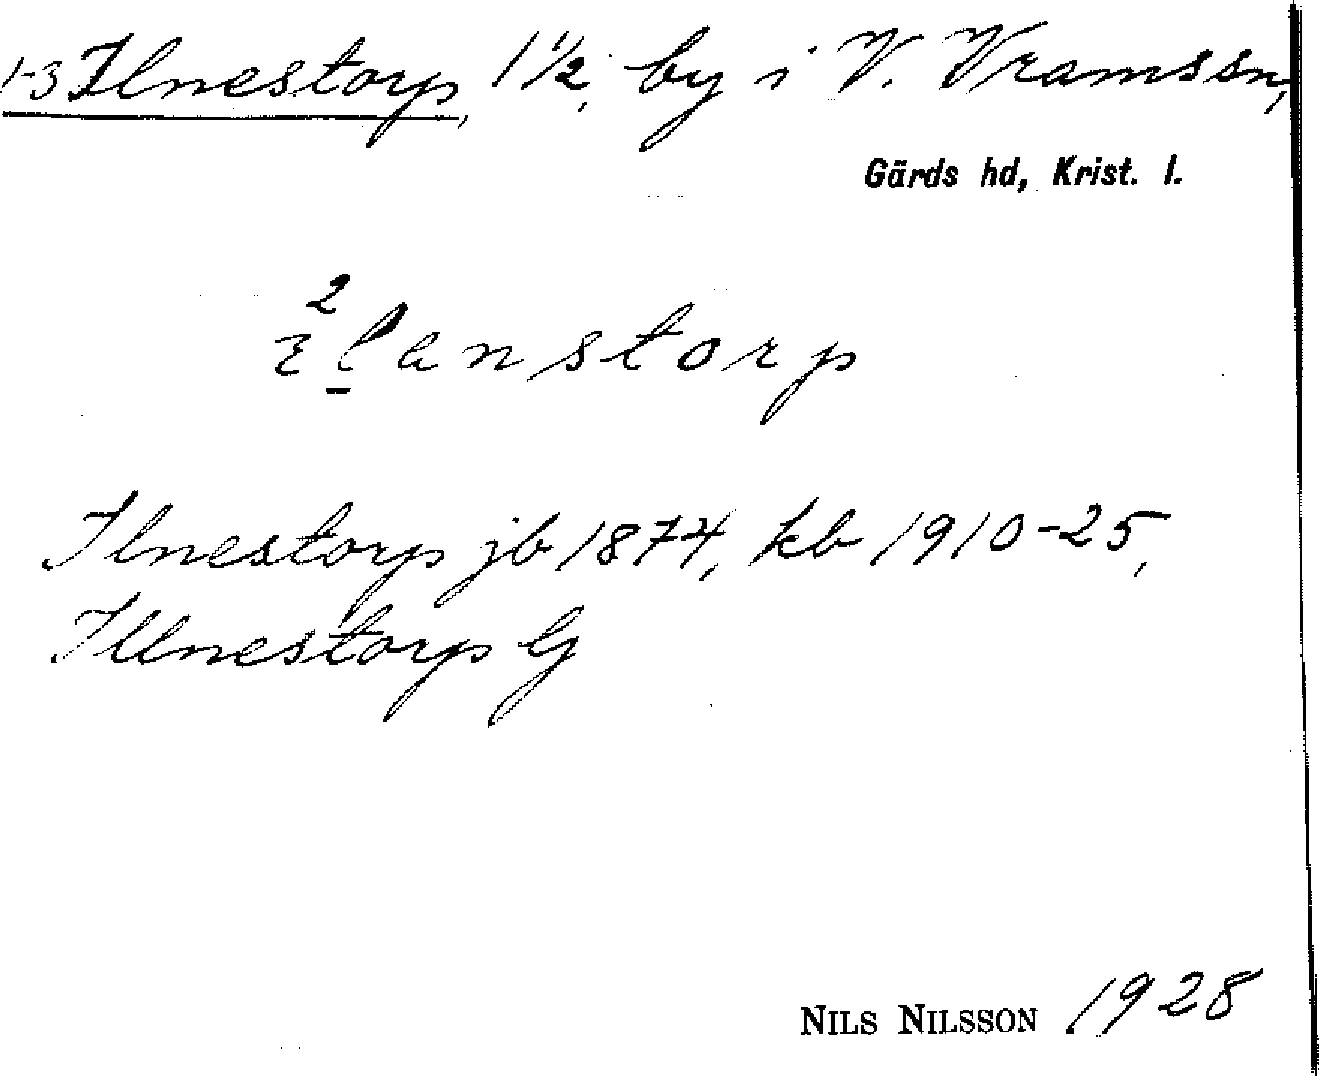 1-3 Ilnestorp, 1 1/2, by i V. Vramssn,
Gärds hd, Krist. l.
Ilnestorp jb 1874, kb 1910-25,
Illnestorp G
NILS NILSSON 1928